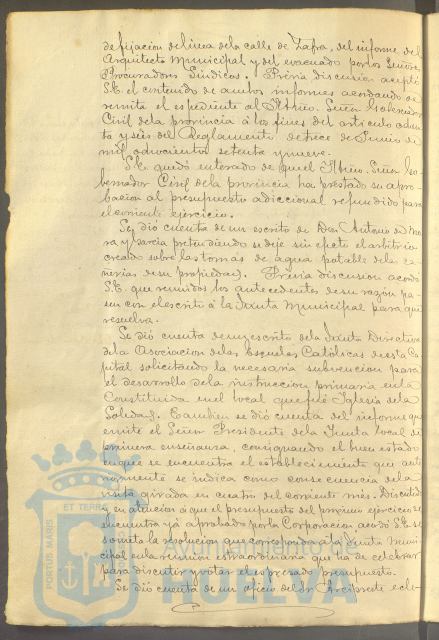 de fijacion de linea de la calle de Zafra, del informe del
Arquitecto Municipal y del evacuado por los Señores
Procuradores Síndicos. Prévia discusion aceptó
S.E. el contenido de ambos informes acordando se
remita el espediente al Iltmo. Señor Gobernador
Civil de la provincia á los fines del articulo
y seis del Reglamento de trece de Junio de
mil ochocientos setenta y nueve.
S.E. quedó enterado de que el Iltmo. Señor Go-
bernador Civil de la provincia ha prestado su apro-
bacion al presupuesto adiccional refundido para
el corriente ejercicio.
Se dió cuenta de un escrito de Don Antonio de Mo-
ra y Garcia pretendiendo se deje sin efecto el arbitrio
creado sobre las tomas de agua potable de la ca-
ñerias de su propiedad. Prévia discusion acordó
S.E. que reunidos los antecedentes de su razón pa-
sen con el escrito á la Junta Municipal para que
resuelva.
Se dió cuenta de un escrito de la Junta Directiva
de la Asociacion de las Escuelas Católicas de esta Ca-
pital solicitando la necesaria subvencion para
el desarrollo de la instruccion primaria en la
Constituida en el local que fué Iglesia de la
Soledad. Tambien se dió cuenta del informe que
emite el Señor Presidente de la Junta local de
primera enseñanza, consignando el buen estado
en que se encuentra el establecimiento que ante-
riormente se indica como consecuencia de la
visita girada en cuatro del corriente mes. Discutido
y en atencion á que el presupuesto del próximo ejercicio se
encuentra yá aprobado por la Corporacion acordó S.E. se
someta la resolucion que corresponda á la Junta Muni-
cipal en la reunion extraordinaria que ha de celebrar
para discutir y votar el espresado presupuesto.
Se dió cuenta de un oficio del Sr. Arcipreste ecle-
PORTUS MARIS ET TERRAE
Ayuntamiento de
HUELVA